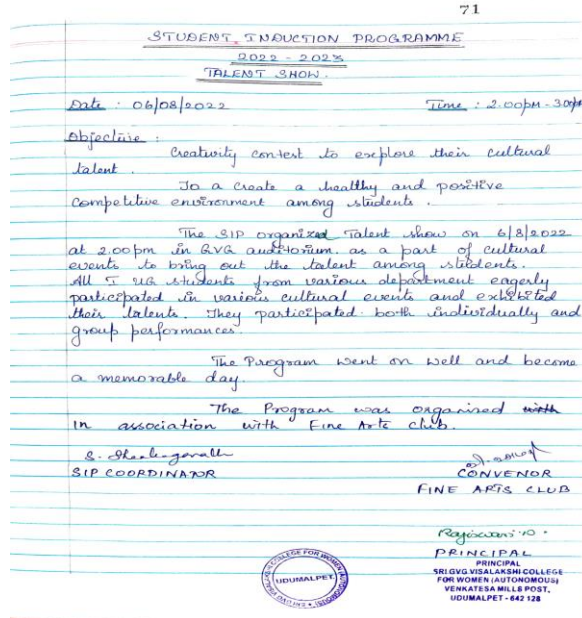 71
STUDENT INDUCTION PROGRAMME
2022 - 2023
TALENT SHOW.
Date : 06/08/2022 Time : 2.00PM - 3.00PM
Objective :
Creativity contest to explore their cultural
talent.
To a create a healthy and positive
competitive environment among students.
The SIP organized Talent show on 6/8/2022
at 2.00pm in GVG auditorium. as a part of cultural
events to bring out the talent among students.
All I UG students from various department eagerly
participated in various cultural events and exhibited
their talents. They participated both individually and
group performances.
The Program went on well and become
a memorable day.
The Program was organised with
in association with Fine Arts club.
SIP COORDINATOR
CONVENOR
FINE ARTS CLUB
PRINCIPAL
PRINCIPAL
SRI GVG VISALAKSHI COLLEGE
FOR WOMEN (AUTONOMOUS)
VENKATESA MILLS POST,
UDUMALPET - 642 128
UDUMALPET.